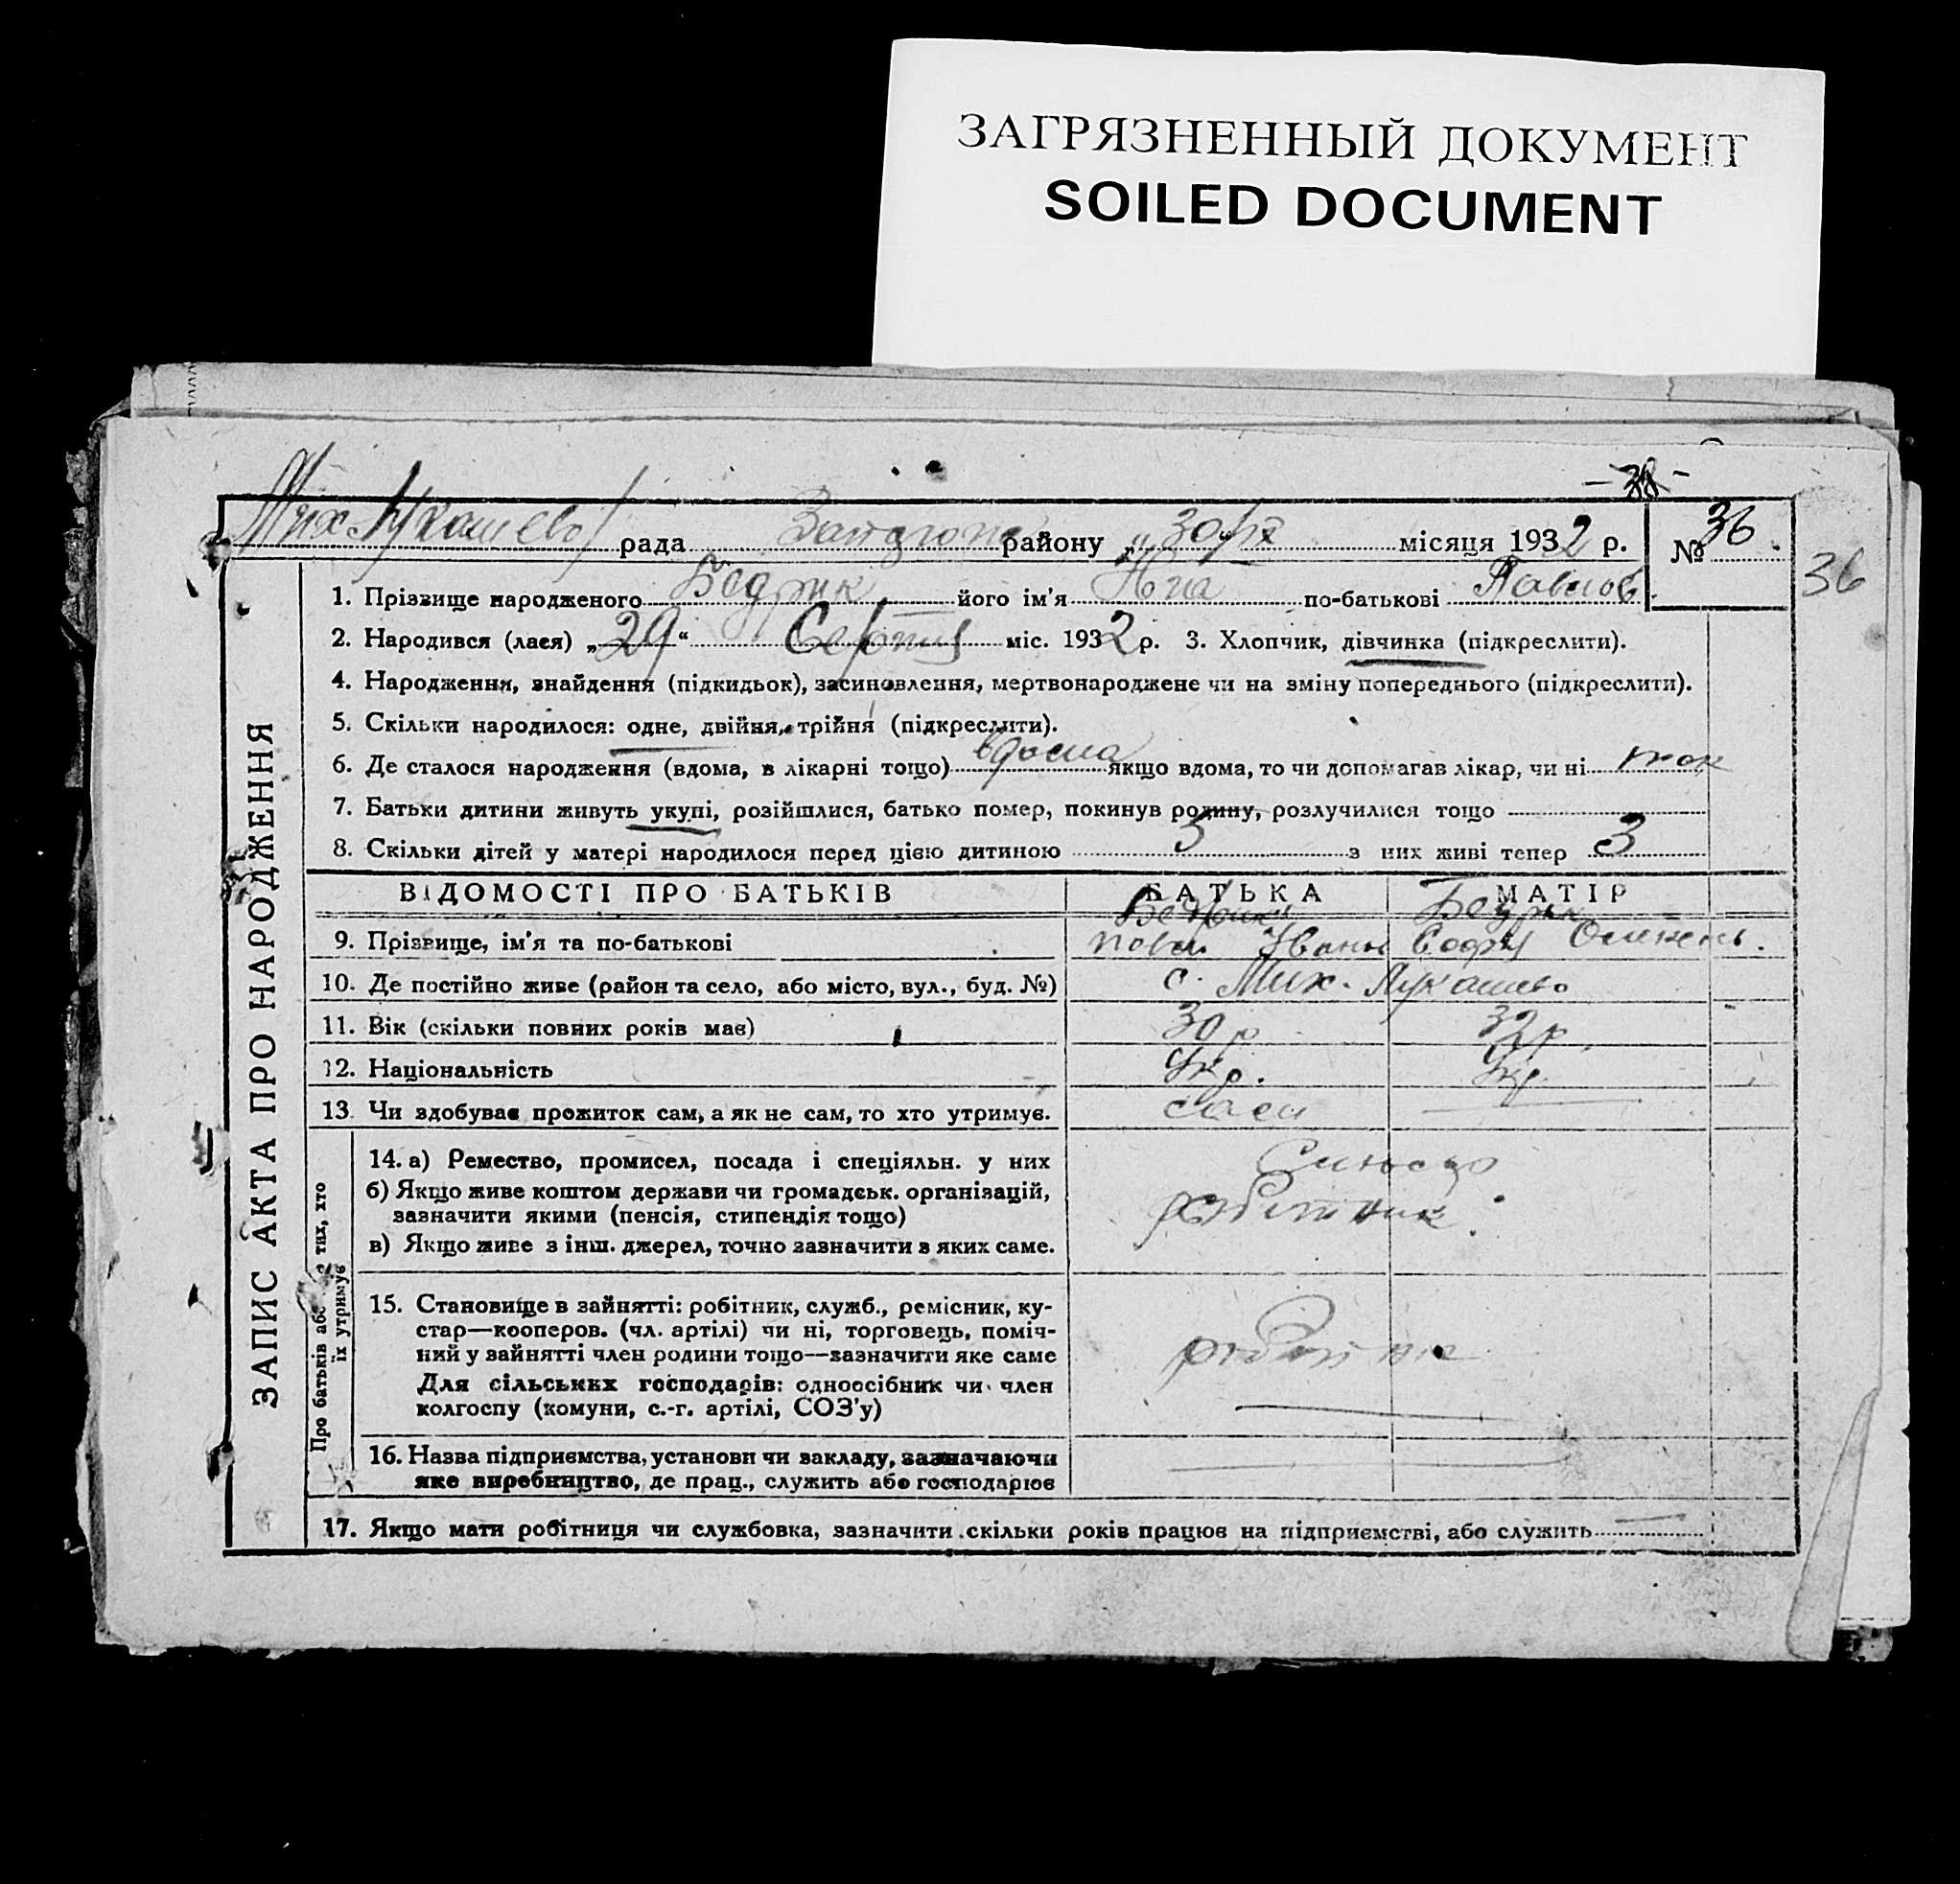 ЗАГРЯЗНЕННЫЙ ДОКУМЕНТ
SOILED DOCUMENT
Мих Лукашево рада района „30/ІХ“ місяця 1932 р. № 36
36
1. Прізвище народженого Бедрик його ім'я по-батькові Павлов.
2. Народився (лася) „29“ Серпня міс. 1932 р. 3. Хлопчик, дівчинка (підкреслити).
4. Народження, знайдення (підкидьок), засиновлення, мертвонароджене чи на зміну попереднього (підкреслити).
5. Скільки народилося: одне, двійня, трійня (підкреслити).
6. Де сталося народження (вдома, в лікарні тощо) вдома якщо вдома, то чи допомагав лікар, чи ні так
7. Батьки дитини живуть укупі, розійшлися, батько помер, покинув родину, розлучилися тощо
8. Скільки дітей у матері народилося перед цією дитиною 3 з них живі тепер 3
ВІДОМОСТІ ПРО БАТЬКІВ БАТЬКА МАТІР
Бедрик Бедрик
9. Прізвище, ім'я та по-батькові Павел Иванов Софія
10. Де постійно живе (район та село, або місто, вул., буд. №) с. Мих. Лукашево
11. Вік (скільки повних років має) 30 р 32 р.
12. Національність Укр. Укр.
13. Чи здобуває прожиток сам, а як не сам, то хто утримує. сам
14. а) Ремество, промисел, посада і спеціяльн. у них
б) Якщо живе коштом держави чи громадськ. організацій,
зазначити якими (пенсія, стипендія тощо) робітник.
в) Якщо живе з інш. джерел, точно зазначити з яких саме.
15. Становище в зайнятті: робітник, служб., ремісник, ку-
стар—кооперов. (чл. артілі) чи ні, торговець, поміч-
ний у зайнятті член родини тощо—зазначити яке саме робітник
Для сільських господарів: одноосібник чи член
колгоспу (комуни, с.-г. артілі, СОЗ'у)
16. Назва підприємства, установи чи закладу, зазначаючи
яке виробництво, де прац., служить або господарює
17. Якщо мати робітниця чи службовка, зазначити скільки років працює на підприємстві, або служить
ЗАПИС АКТА ПРО НАРОДЖЕННЯ
Про батьків або тих, хто
їх утримує